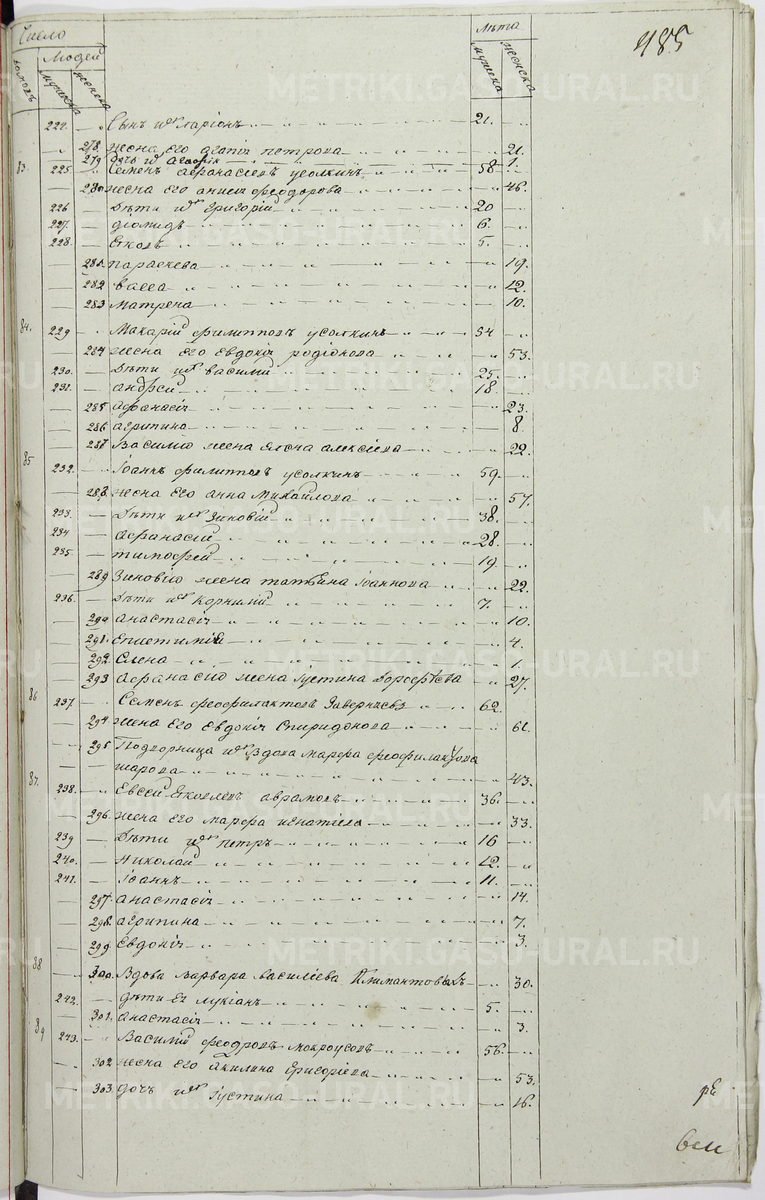 Число
Людей
домовъ
мужеска
женска
Лѣта
мужеска
женска
485
224. Сынъ ихъ Ларіонъ 21.
278. жена его агапіч петрова 21.
279. дочь ихъ 1.
83. 225. Семенъ афанасіевъ усолкинъ 58
280. жена его анисіч феодорова 46.
226. Дѣти ихъ григорій 20
227. діомидъ 6.
228. Яковъ 5.
281. параскева 19.
282. васса 12.
283. матрена 10.
84. 229. Макарій филипповъ усолкинъ 54
284. жена его Евдокіч родіонова 53.
230. Дѣти ихъ василій 25.
231. андрей 18
285. афанасіч 23.
286. агрипина 8
287. Василію жена алексіева 22.
85 232. Іоаннъ филипповъ усолкинъ 59.
288. жена его анна михайлова 57.
233. Дѣти ихъ Зиновій 38.
234 афанасій 28.
235. тимофей 19
289. Зиновію жена татьяна Іоаннова 22.
236. Дѣти ихъ корнилій 7.
290. анастасіч 10.
291. епистимія 4.
292. Елена 1.
293. афанасию жена Іустина дорофѣева 27.
86 237. Семенъ феофилактовъ 62.
294. жена его Евдокіч Спиридонова 61.
295. Подворница ихъ вдова марфа феофилактова
шарова 43.
87. 238. Евсей Яковлевъ аврамовъ 36.
296. жена его марфа игнатіева 33.
239. Дѣти ихъ петръ 16
240. Николай 12.
241. Іоаннъ 11.
297. анастасіч 14.
298. агрипина 7.
299. Евдокіч 3.
88 300. Вдова варвара василіева Климантовыхъ 30.
242. дѣти Ея лукіанъ 5.
301. анастасіч 3.
89 243. Василій феодоровъ мокроусовъ 56.
302. жена его акилина григоріева 53.
303. дочь ихъ Іустина 16.
METRIKI.GASO-URAL.RU